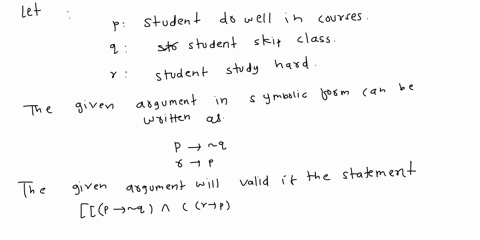 Let :
p: student do well in courses.
q: student skip class.
r: student study hard.
The given argument in symbolic form can be
written as.
P → ~q
r → p
The given argument will valid if the statement
[[(p → ~q) ∧ ( (r→p)